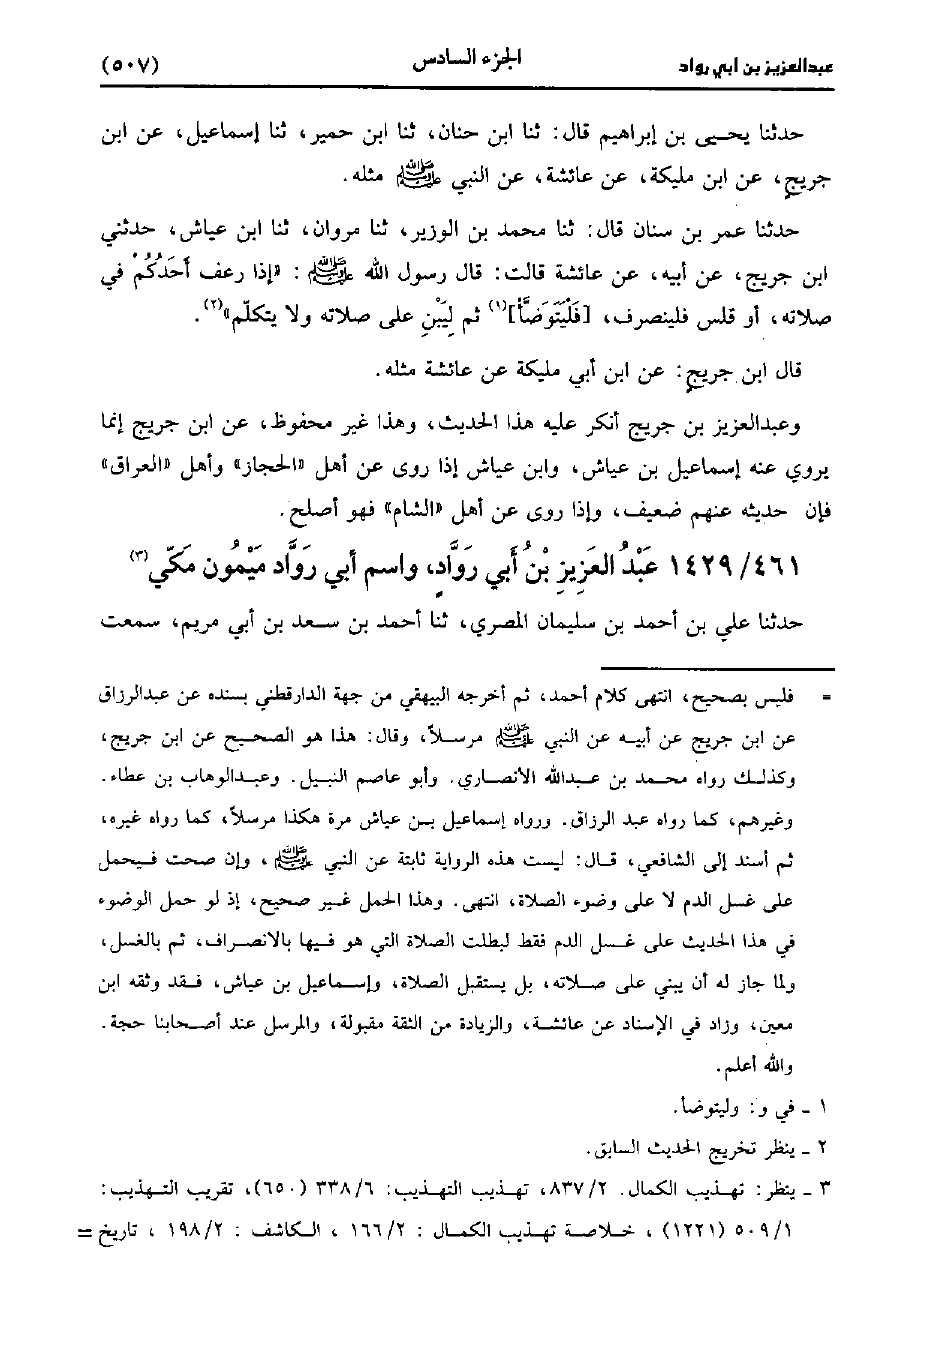 عبدالعزيز بن أبي رواد الجزء السادس (٥٠٧)
حدثنا يحيى بن إبراهيم قال: ثنا ابن حنان، ثنا ابن حمير، ثنا إسماعيل، عن ابن
جريج، عن ابن مليكة، عن عائشة، عن النبي ﷺ مثله.
حدثنا عمر بن سنان قال: ثنا محمد بن الوزير، ثنا مروان، ثنا ابن عياش، حدثني
ابن جريج، عن أبيه، عن عائشة قالت: قال رسول الله ﷺ: «إذا رعف أَحَدُكُمْ في
صلاته، أو قلس فلينصرف، [فَلْيَتَوَضَّأْ](١) ثم لِيَبْنِ على صلاته ولا يتكلّم»(٢).
قال ابن جريج: عن ابن أبي مليكة عن عائشة مثله.
وعبدالعزيز بن جريج أنكر عليه هذا الحديث، وهذا غير محفوظ، عن ابن جريج إنما
يروي عنه إسماعيل بن عياش، وابن عياش إذا روى عن أهل «الحجاز» وأهل «العراق»
فإن حديثه عنهم ضعيف، وإذا روى عن أهل «الشام» فهو أصلح.
١٤٢٩/٤٦١ عَبْدُ العَزِيزِ بْنُ أَبي رَوَّاد، واسم أبي رَوَّاد مَيْمُون مَكّي(٣)
حدثنا علي بن أحمد بن سليمان المصري، ثنا أحمد بن سعد بن أبي مريم، سمعت
= فليس بصحيح، انتهى كلام أحمد، ثم أخرجه البيهقي من جهة الدارقطني بسنده عن عبدالرزاق
عن ابن جريج عن أبيه عن النبي ﷺ مرسلاً، وقال: هذا هو الصحيح عن ابن جريج،
وكذلك رواه محمد بن عبدالله الأنصاري. وأبو عاصم النبيل. وعبدالوهاب بن عطاء.
وغيرهم، كما رواه عبد الرزاق. ورواه إسماعيل بن عياش مرة هكذا مرسلاً، كما رواه غيره،
ثم أسند إلى الشافعي، قال: ليست هذه الرواية ثابتة عن النبي ﷺ، وإن صحت فيحمل
على غسل الدم لا على وضوء الصلاة، انتهى. وهذا الحمل غير صحيح، إذ لو حمل الوضوء
في هذا الحديث على غسل الدم فقط لبطلت الصلاة التي هو فيها بالانصراف، ثم بالغسل،
ولما جاز له أن يبني على صلاته، بل يستقبل الصلاة، وإسماعيل بن عياش، فقد وثقه ابن
معين، وزاد في الإسناد عن عائشة، والزيادة من الثقة مقبولة، والمرسل عند أصحابنا حجة.
والله أعلم.
١ ـ في و: وليتوضأ.
٢ ـ ينظر تخريج الحديث السابق.
٣ ـ ينظر: تهذيب الكمال. ٨٣٧/٢، تهذيب التهذيب: ٣٣٨/٦ (٦٥٠)، تقريب التهذيب:
٥٠٩/١ (١٢٢١)، خلاصة تهذيب الكمال: ١٦٦/٢، الكاشف: ١٩٨/٢، تاريخ =